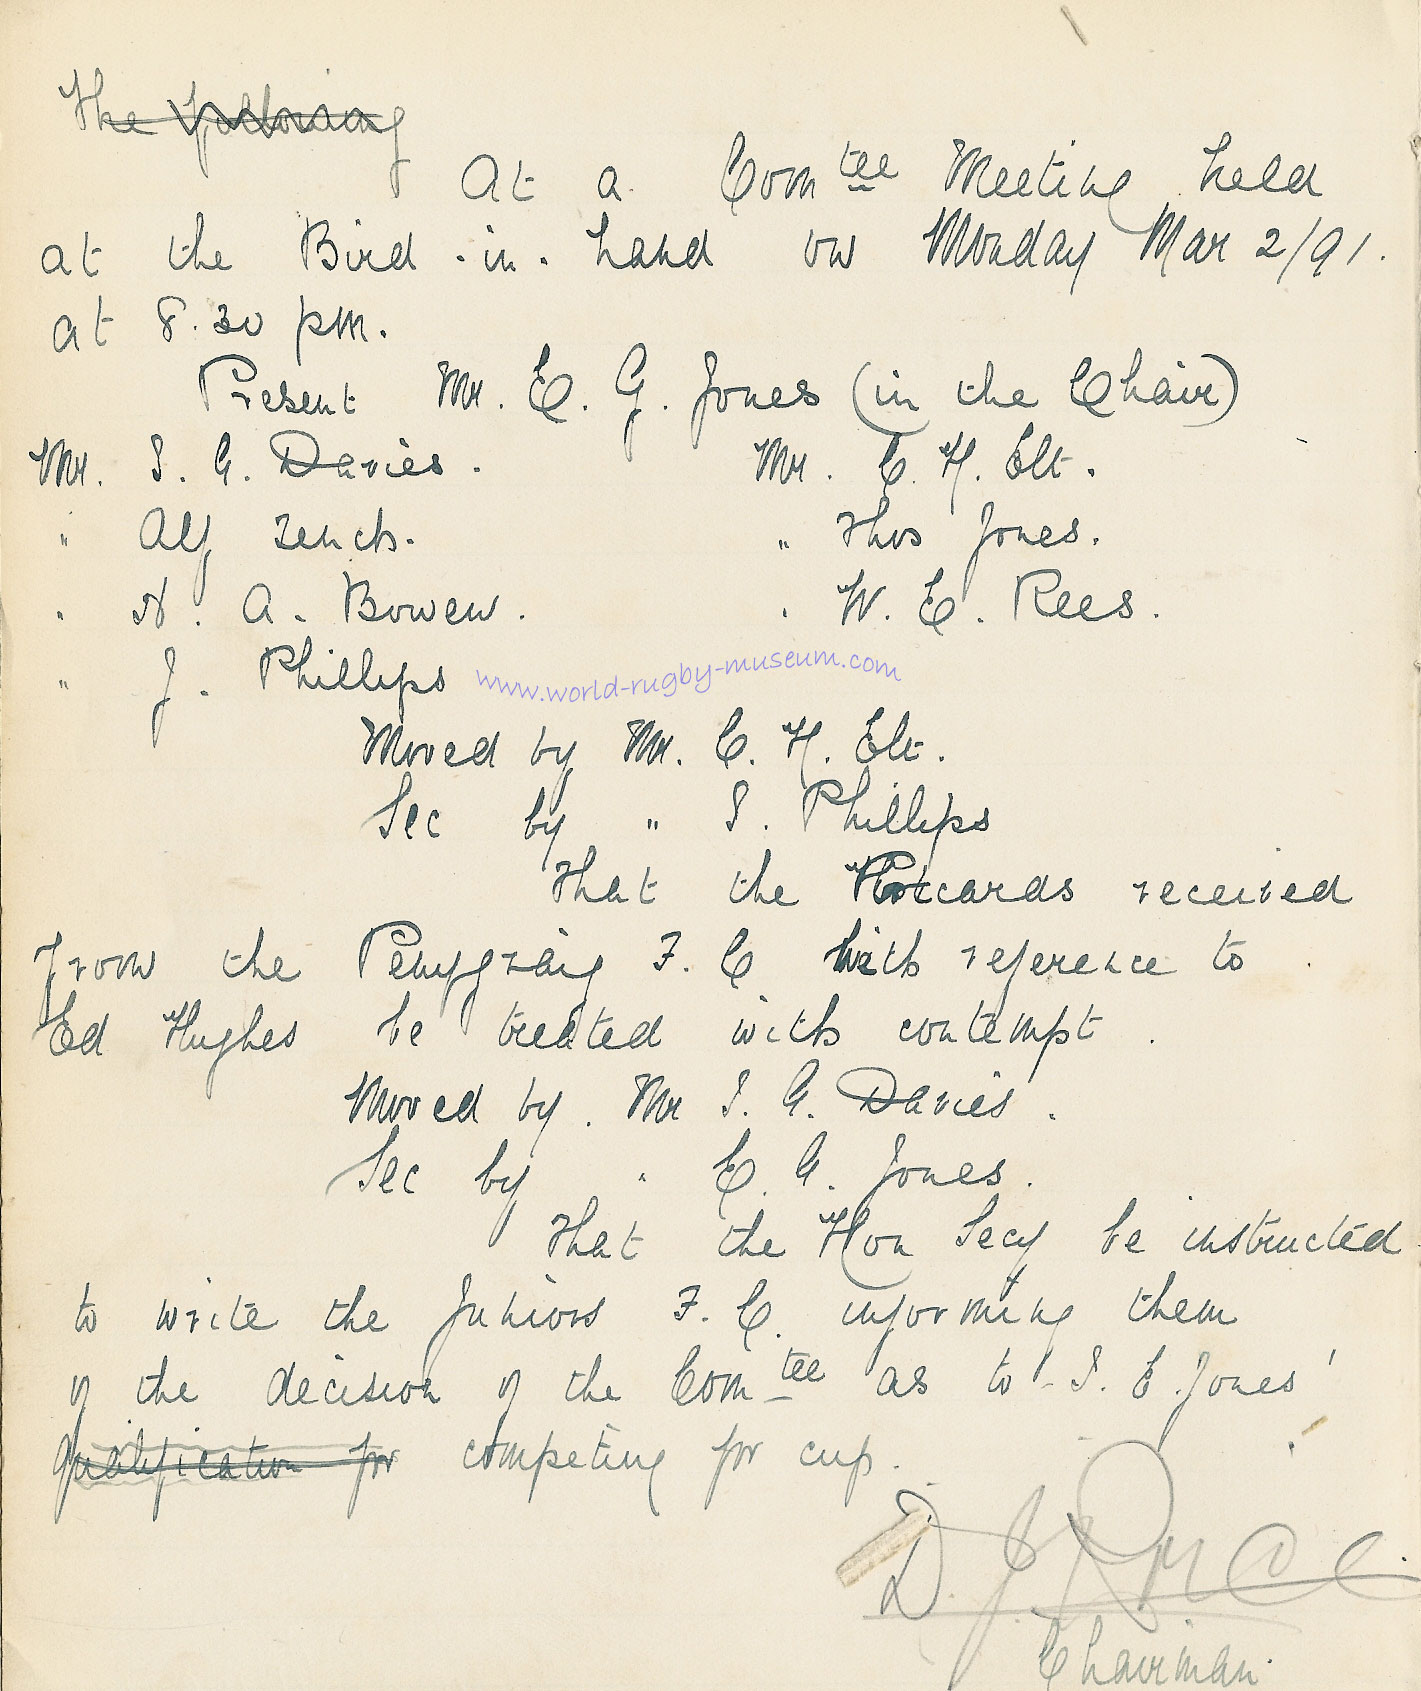 The following
At a Comtee Meeting held
at the Bird-in-hand on Monday Mar 2/91.
at 8.30 pm.
Present Mr. E. G. Jones (in the Chair)
Mr. S. G. Davies. Mr. C. H. Elt.
" Alf Tench. " Thos Jones.
" N. A. Bowen. " W. E. Rees.
" J. Phillips
www.world-rugby-museum.com
Moved by Mr. C. H. Elt.
Sec by " S. Phillips
That the Postcards received
from the Penygraig F. C with reference to
Ed Hughes be treated with contempt.
Moved by. Mr S. G. Davies.
Sec by " E. G. Jones.
That the Hon Secy be instructed
to write the Juniors F. C. informing them
of the decision of the Comtee as to S. E. Jones'
qualification for competing for cup.
D. J.
Chairman.